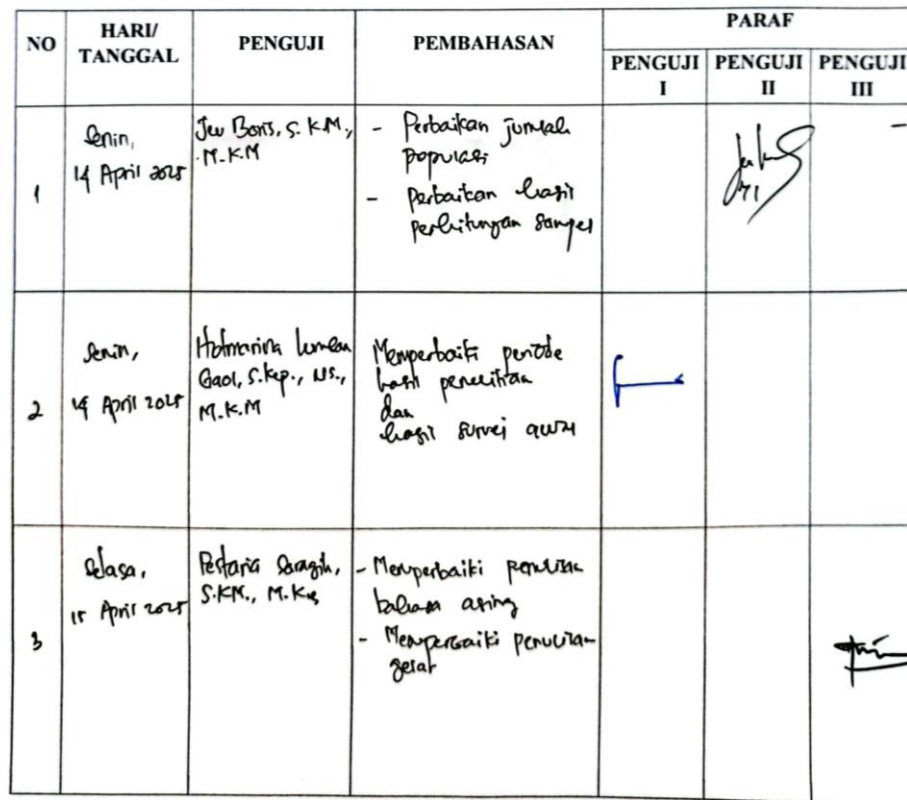 NO
HARI/
TANGGAL
PENGUJI
PEMBAHASAN
PARAF
PENGUJI
I
PENGUJI
II
PENGUJI
III
1
Senin,
14 April 2025
Jev Boris, S.KM.,
M.K.M
- Perbaikan jumlah
populasi
- Perbaikan hasil
perhitungan sampel
2
Senin,
14 April 2025
Hotmarina Lumban
Gaol, S.Kep., Ns.,
M.K.M
Memperbaiki periode
hasil penelitian
dan
hasil survei awal
3
Selasa,
15 April 2025
Pestaria Saragih,
S.KM., M.Kes
- Memperbaiki penulisan
bahasa asing
- Memperbaiki penulisan